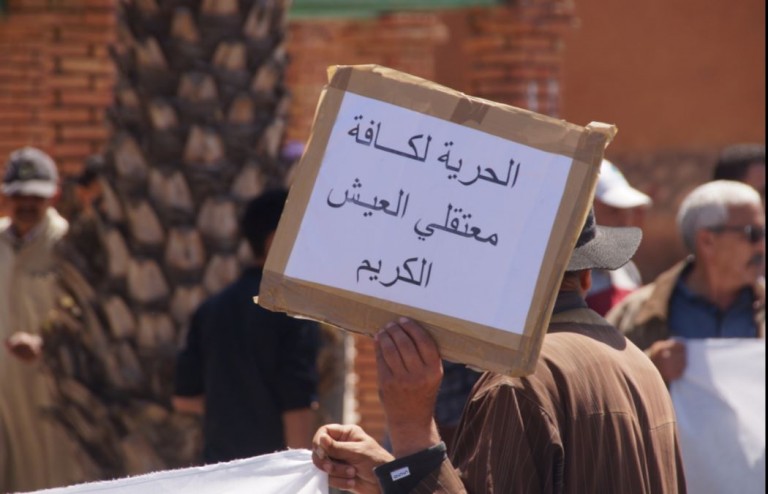 الحرية لكافة
معتقلي العيش
الكريم